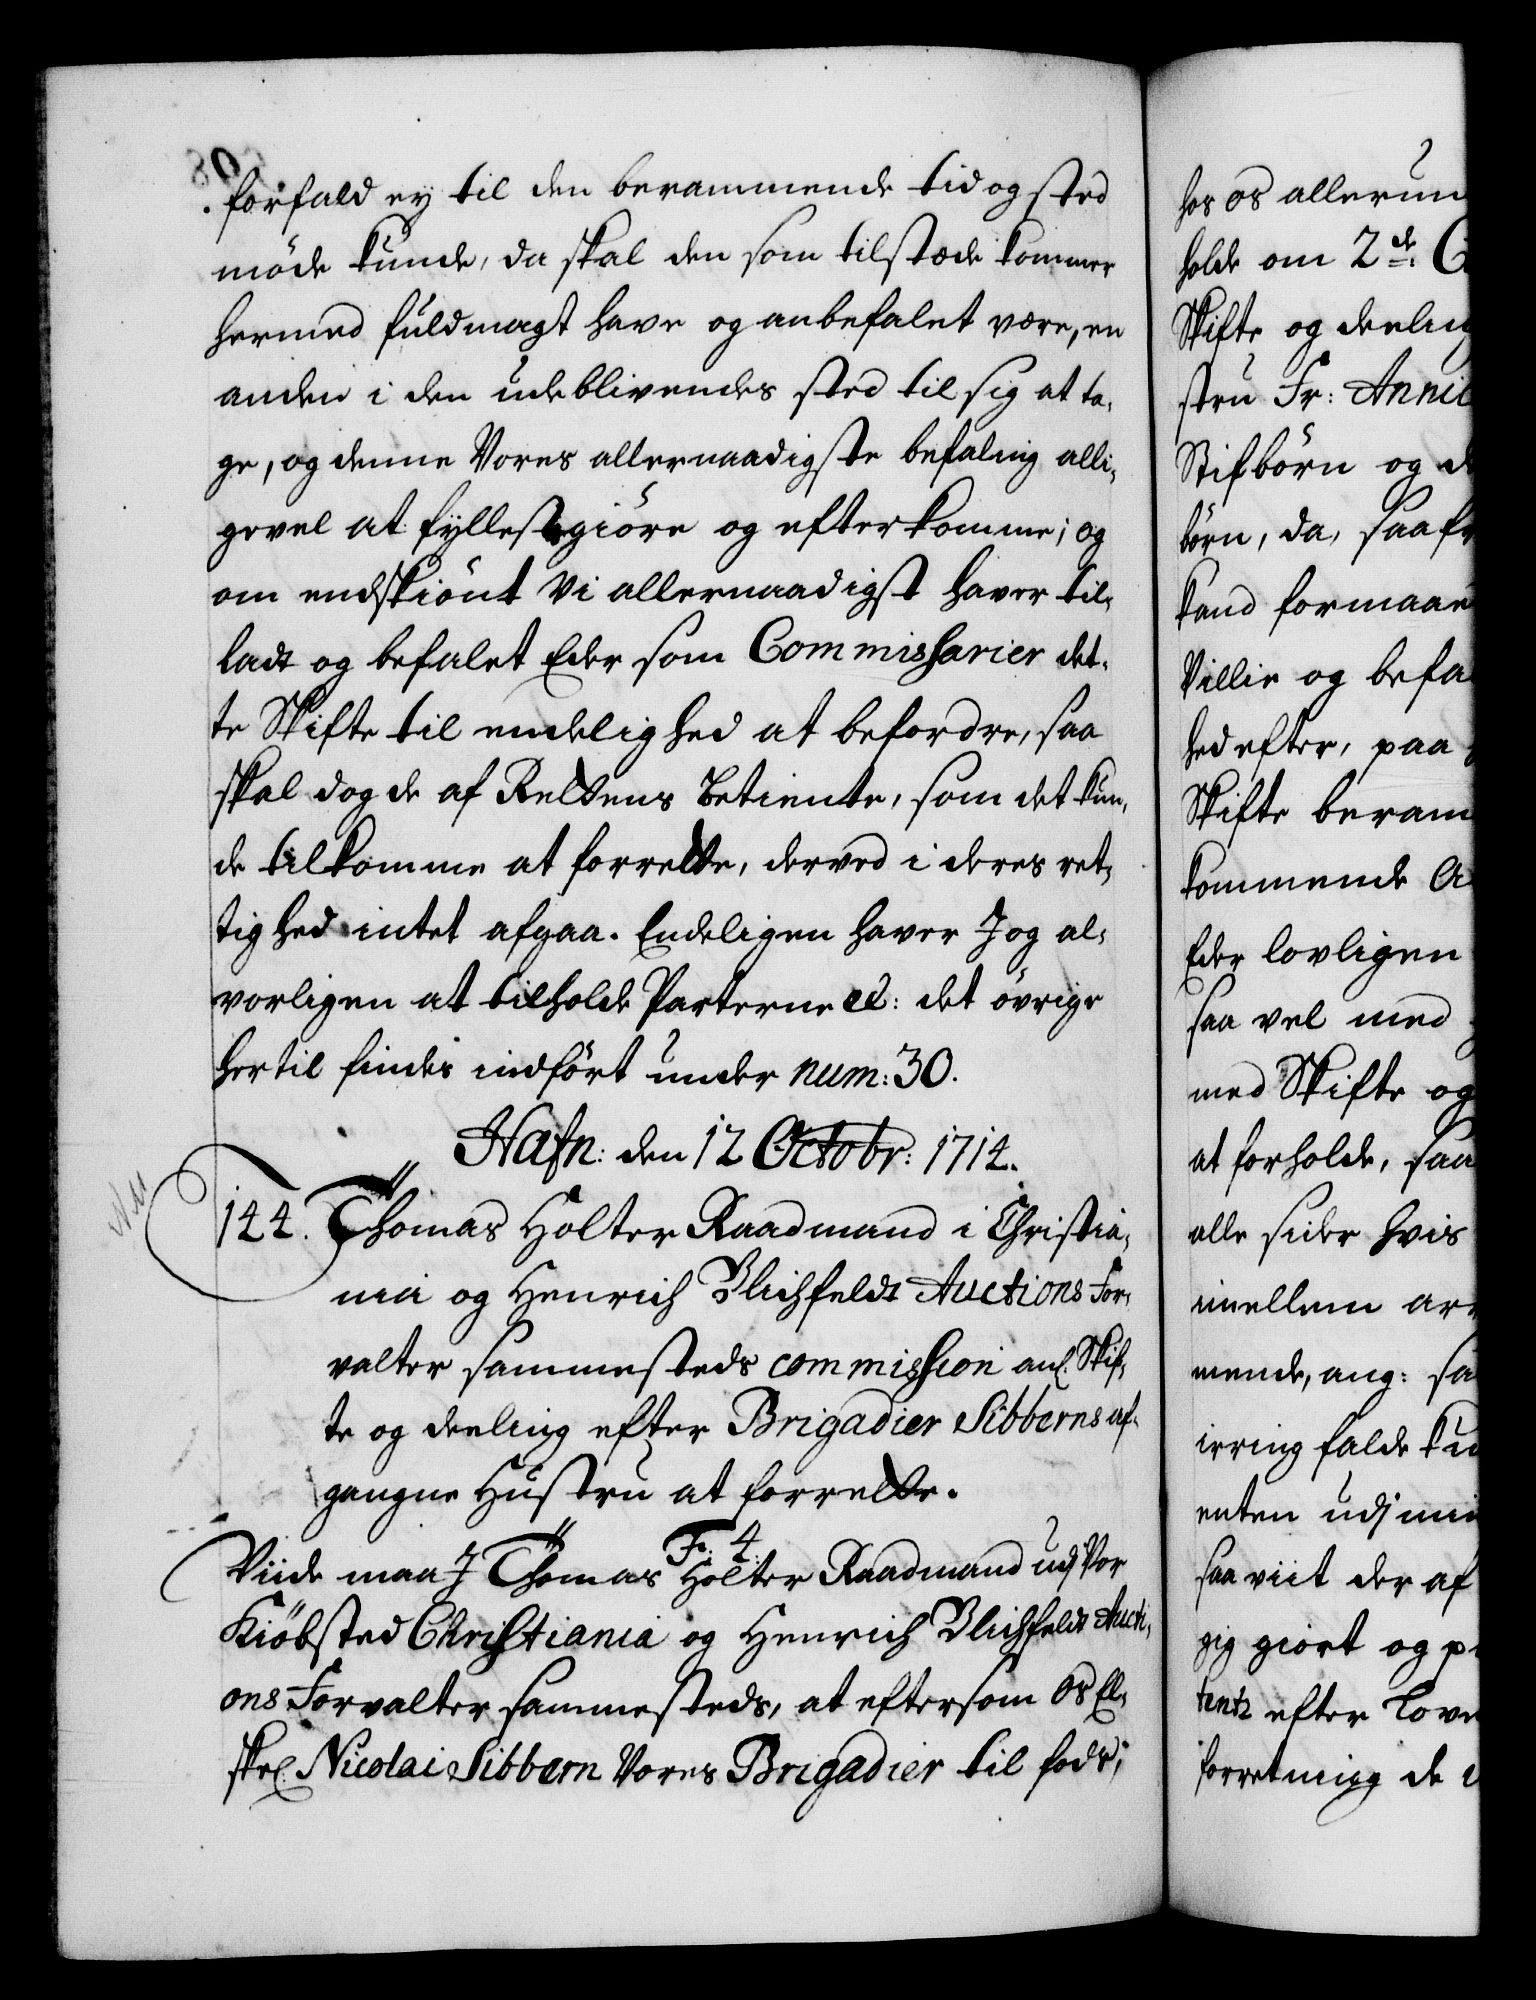 forfald ey til den berammende tid og sted
möde kunde, da skal den som tilstæde kommer
hermed fuldmagt have og anbefalet være, en
anden i den udeblivendes sted til sig at ta,
ge, og denne Vores allernaadigste befaling alli,
gevel at fyllestgiöre og efterkomme; og
om endskiönt Vi allernaadigst haver til,
ladt og befalet Eder som Commissarier det,
te Skifte til endelighed at befordre, saa
skal dog de af Rettens Betiente, som det kun,
de tilkomme at forrette, derved i deres ret,
tighed intet afgaa. Endeligen haver J og al,
vorligen at tilholde Parterne ec: det övrige
hertil findes indfört under num: 30.
Hafn: den 12 Octobr: 1714.
144. Thomas Holter Raadmand i Christia,
nia og Henrich Blichfeldt Auctions For,
valter sammesteds commission anl. Skif,
te og deeling efter Brigadier Sibberns af,
gangne Hustru at forrette.
Fr: 4.
Viide maa J Thomas Holter Raadmand udj Vor
Kiöbsted Christiania og Henrich Blichfeldt Aucti,
ons Forvalter sammesteds, at eftersom Os El,
skel. Nicolai Sibbern Vores Brigadier til fods,
hos os allerun
holde om 2de. C
Skifte og deeling
stru Fr: Annic
Stifbörn og d
börn, da, saafr
kand formaar
Villie og befa
hed efter, paa
Skifte beram
kommende A
Eder lovligen
saa vel med
med Skifte og
at forholde, saa
alle sider hvis
imellem arv
mende, ang: sa
irring falde ku
enten udj min
saa viit der af
gig giort og p
tentz efter Lov
forretning de